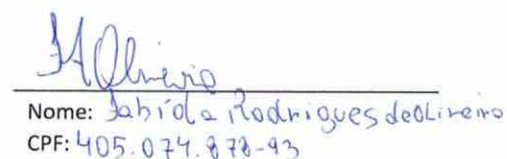 Oliveira
Nome: Fabíola Rodrigues de Oliveira
CPF: 405.074.878-93